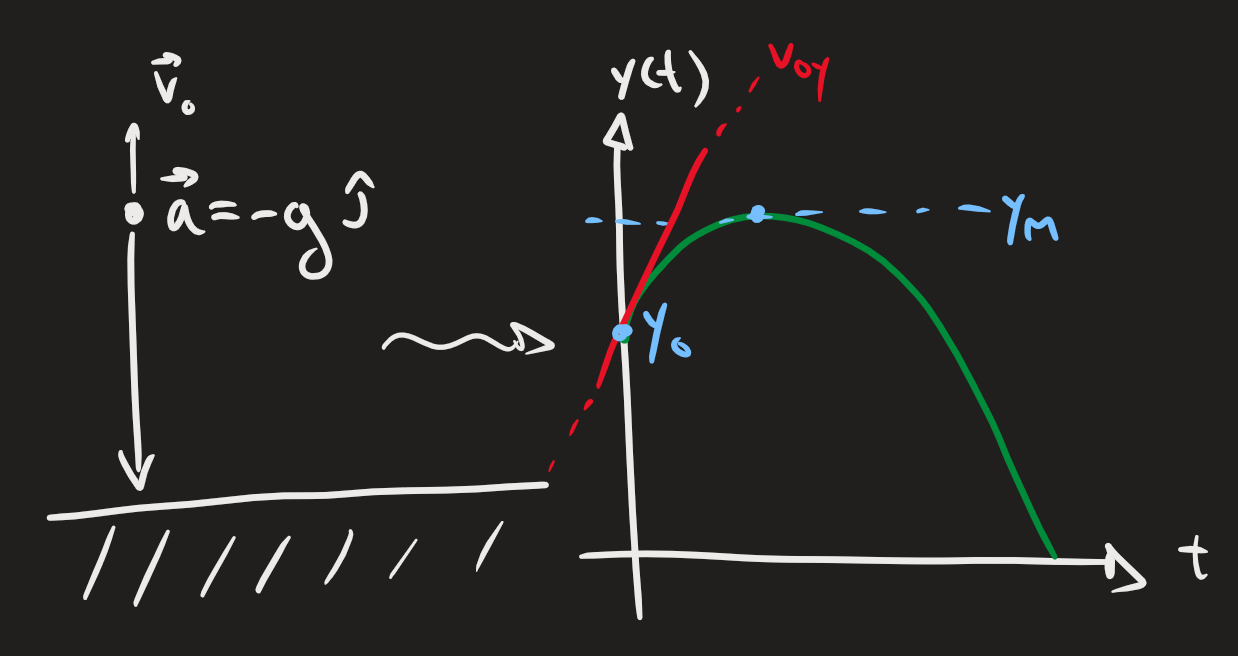 v⃗₀
a⃗ = -g ĵ
y(t)
v₀y
yM
y₀
t